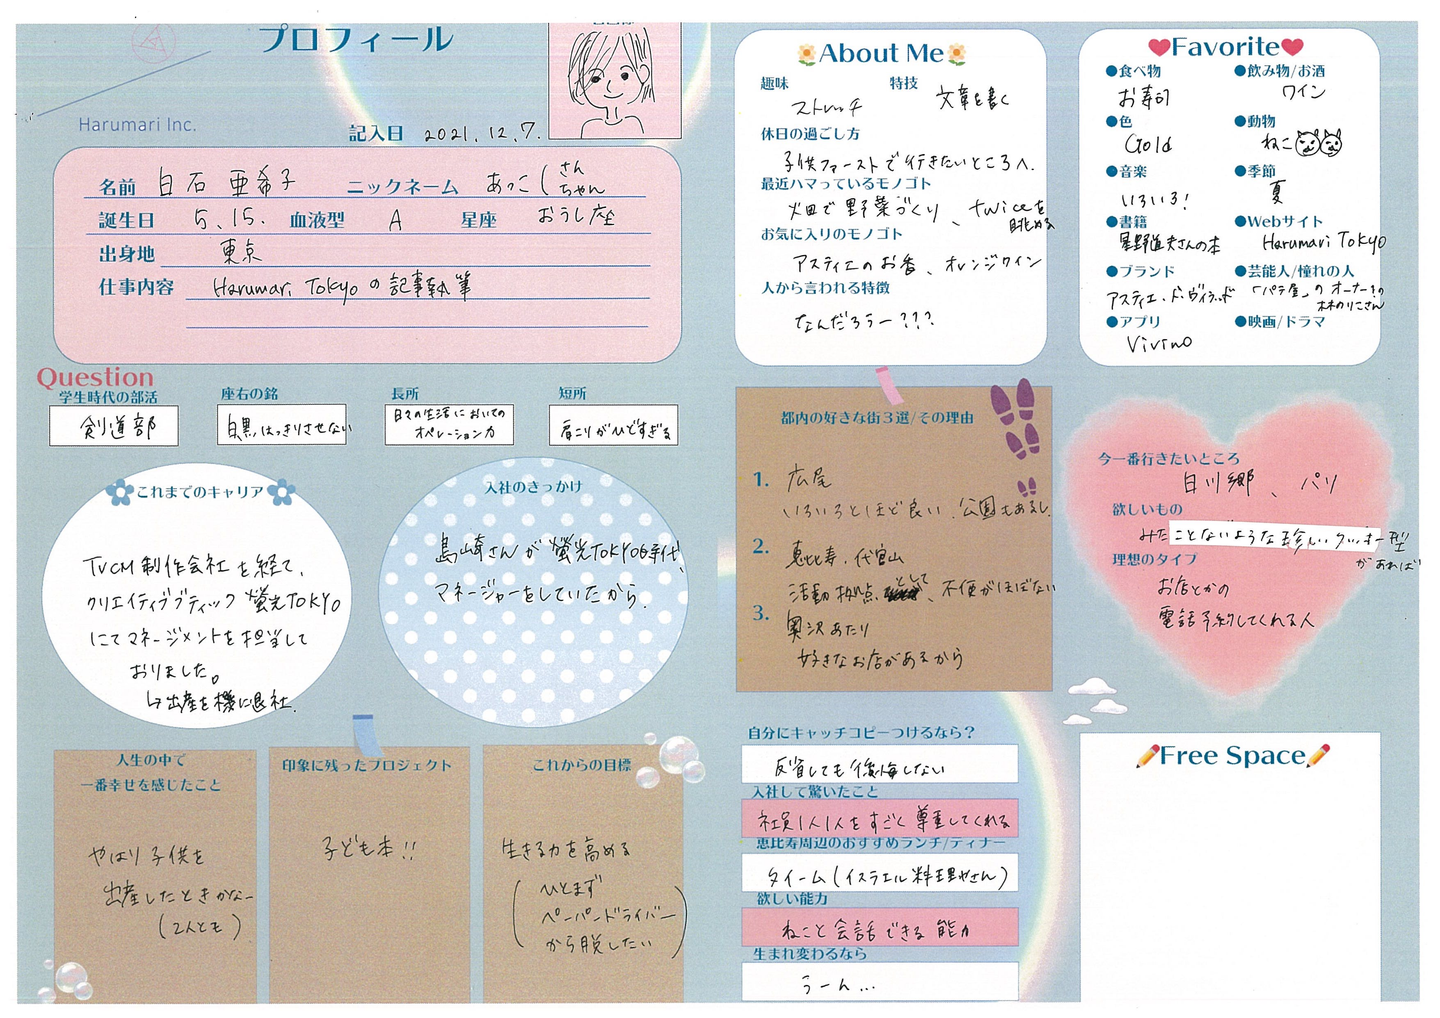 プロフィール
Harumari Inc.
記入日 2021.12.7.
名前 白石 亜希子 ニックネーム あっこ さん ちゃん
誕生日 5.15. 血液型 A 星座 おうし座
出身地 東京
仕事内容 Harumari Tokyoの記事執筆
Question
学生時代の部活
剣道部
座右の銘
白黒はっきりさせない
長所
日々の生活においての
オペレーション力
短所
肩こりがひどすぎる
これまでのキャリア
TVCM制作会社を経て、
クリエイティブブティック 螢光TOKYO
にてマネージメントを担当して
おりました。
↳出産を機に退社.
入社のきっかけ
島崎さんが螢光TOKYO時代
マネージャーをしていたから.
人生の中で
一番幸せを感じたこと
やはり子供を
出産したときかなー
(2人とも)
印象に残ったプロジェクト
子ども本!!
これからの目標
生きる力を高める
(ひとまず
ペーパードライバー
から脱したい)
About Me
趣味 特技
ストレッチ 文章を書く
休日の過ごし方
子供ファーストで行きたいところへ.
最近ハマっているモノゴト
畑で野菜づくり、twiceを
眺める
お気に入りのモノゴト
アスティエのお香、オレンジワイン
人から言われる特徴
なんだろうー???
Favorite
●食べ物 ●飲み物/お酒
お寿司 ワイン
●色 ●動物
Gold ねこ
●音楽 ●季節
いろいろ! 夏
●書籍 ●Webサイト
星野道夫さんの本 Harumari TOKYO
●ブランド ●芸能人/憧れの人
アスティエ・ド・ヴィラット 「パテ屋」のオーナーの
林のり子さん
●アプリ ●映画/ドラマ
Vivino
都内の好きな街3選/その理由
1. 広尾
いろいろとほど良い.公園もあるし.
2. 恵比寿、代官山
活動拠点として、不便がほぼない
3. 奥沢あたり
好きなお店があるから
今一番行きたいところ
白川郷、パリ
欲しいもの
みたことないような珍しいクッキー型
があれば
理想のタイプ
お店とかの
電話予約してくれる人
自分にキャッチコピーつけるなら?
反省しても後悔しない
入社して驚いたこと
社員1人1人をすごく尊重してくれる
恵比寿周辺のおすすめランチ/ディナー
タイーム(イスラエル料理やさん)
欲しい能力
ねこと会話できる能力
生まれ変わるなら
うーん…
Free Space